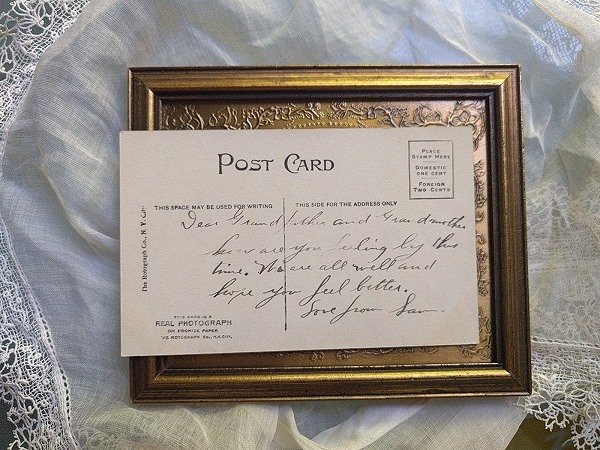 POST CARD
PLACE
STAMP HERE
DOMESTIC
ONE CENT
FOREIGN
TWO CENTS
THIS SPACE MAY BE USED FOR WRITING
THIS SIDE FOR THE ADDRESS ONLY
Dear Grandfather and Grandmother
how are you feeling by this
time. We are all well and
hope you feel better.
Love from Sam.
The Rotograph Co., N. Y. City
THIS CARD IS A
REAL PHOTOGRAPH
ON BROMIDE PAPER
THE ROTOGRAPH Co., N.Y. CITY